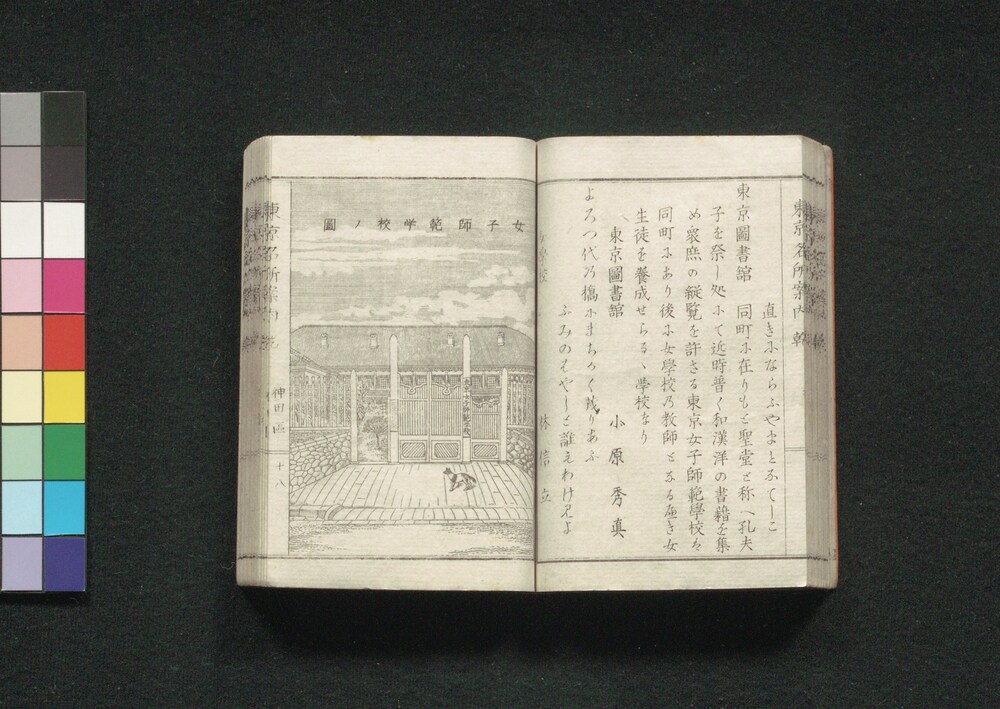 東京名所案内
直きにならふやまとふくしこ
東京圖書舘　同町に在りもと聖堂と称へ孔夫
子を祭し処にて近時普く和漢洋の書籍を集
め衆庶の縦覧を許さる東京女子師範學校ハ
同町にあり後に女學校乃教師となる庭き女
生徒を養成せらるゝ學校なり
東京圖書舘　小原秀真
よろつ代乃橋にまちかく残りあふ
ふみのはやしと誰えわけ見よ
林信立
女子師範学校ノ圖
東京名所案内
神田區
十八